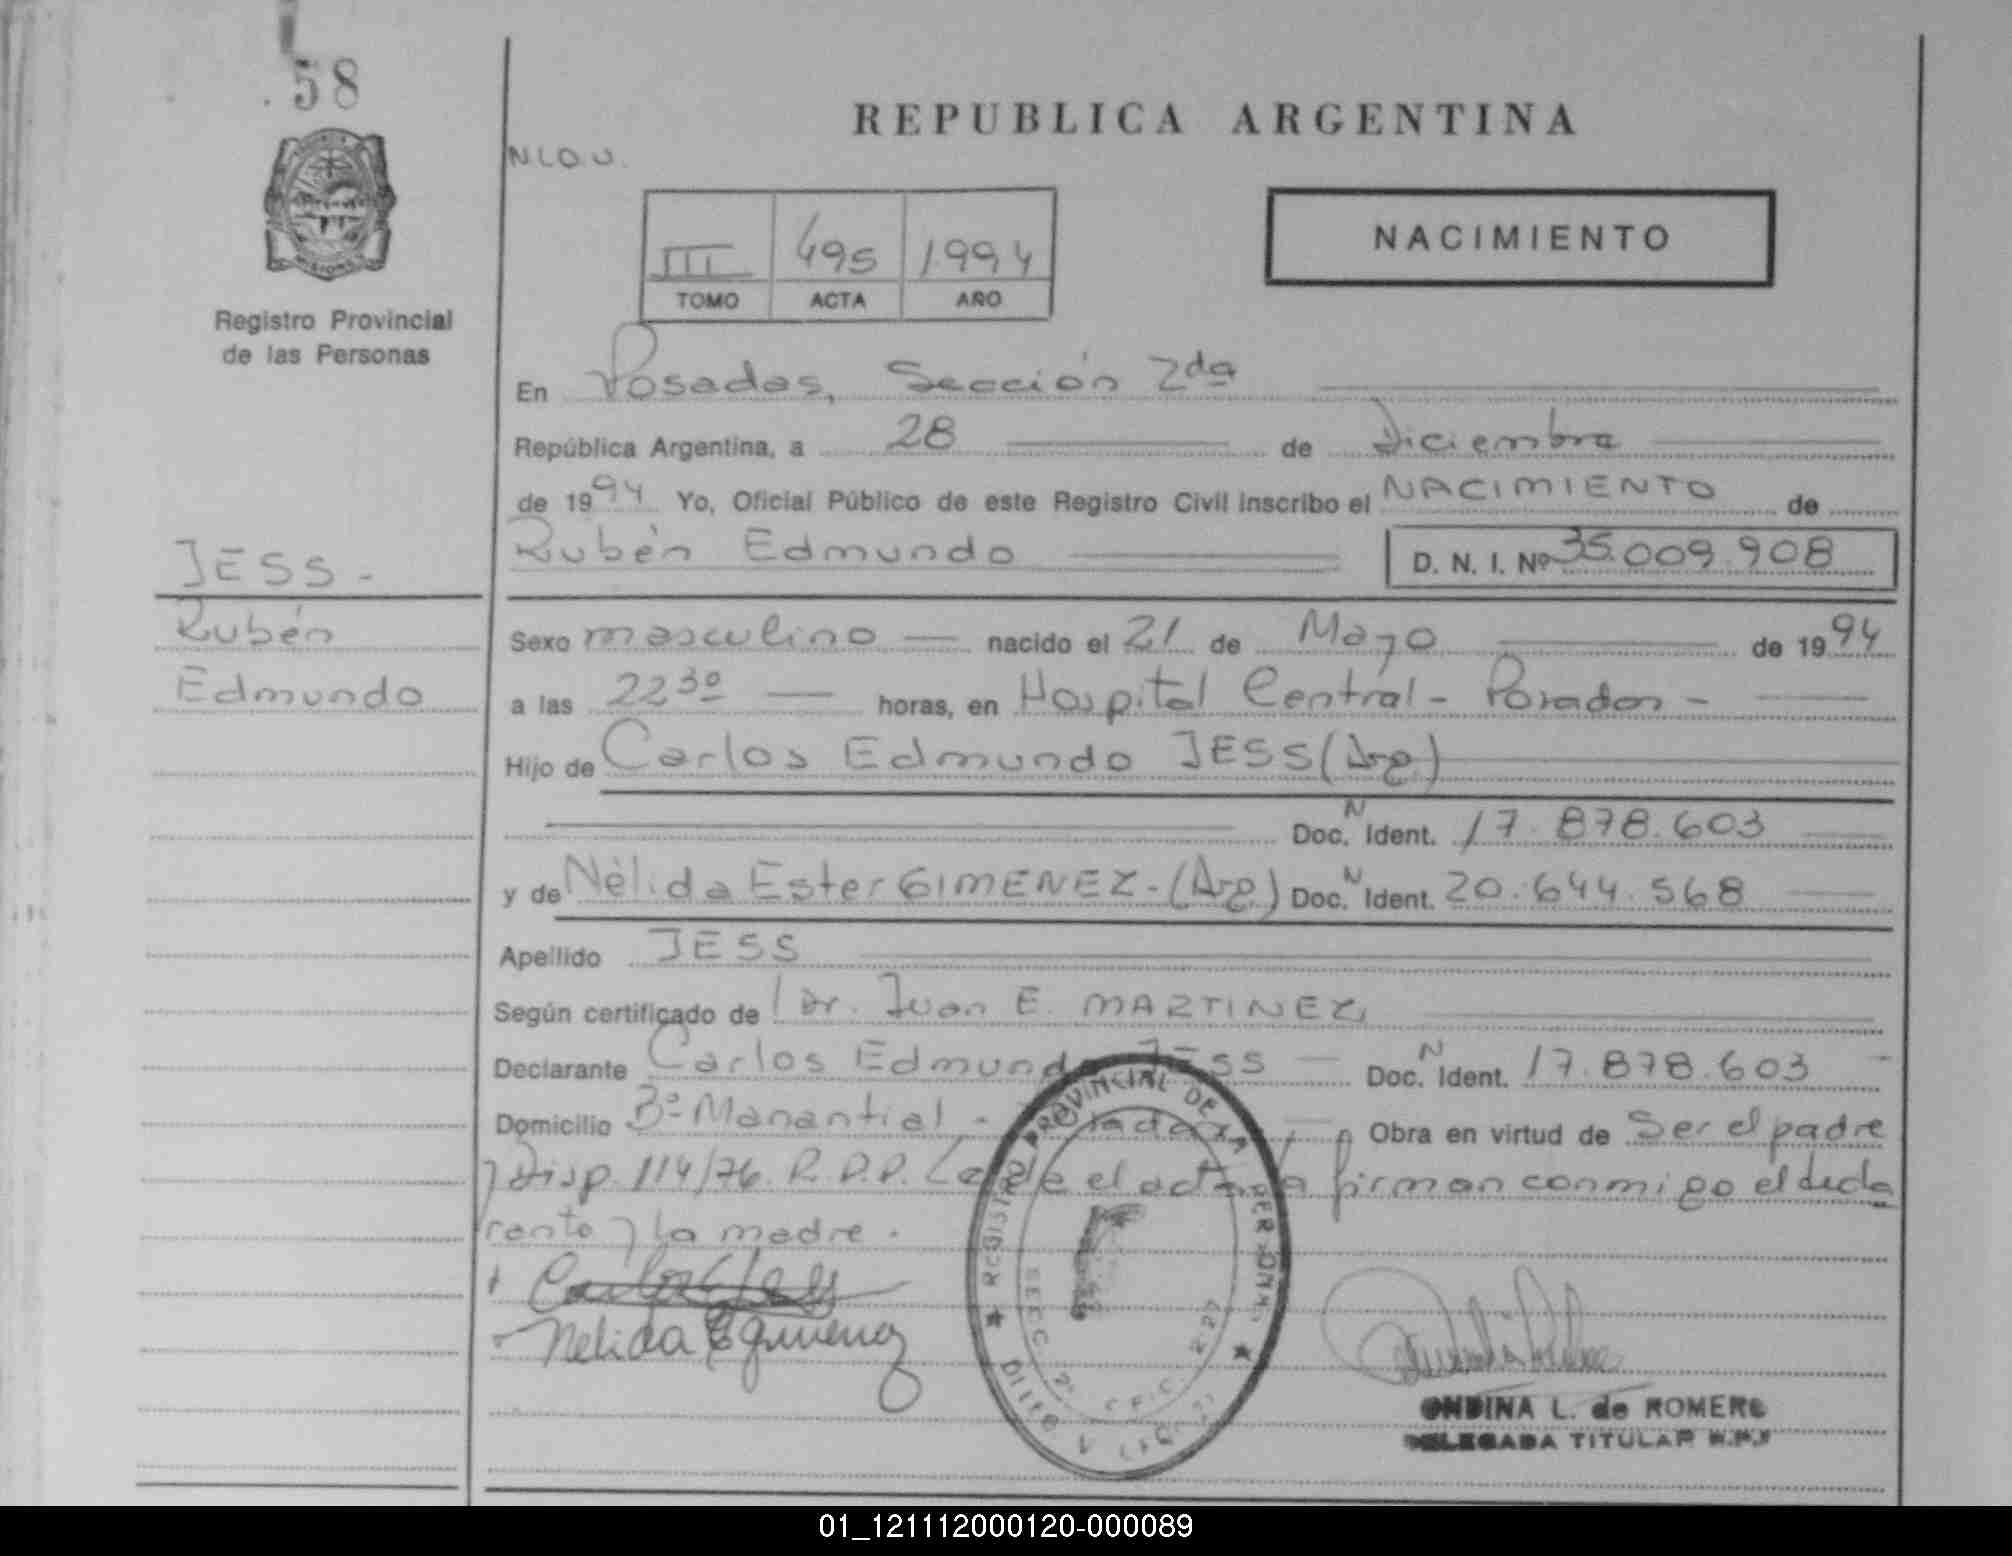 58
REPUBLICA ARGENTINA
N.L.O.U.
III 495 1994
TOMO ACTA AÑO
NACIMIENTO
MISIONES
Registro Provincial
de las Personas
En Posadas, Sección 2da
República Argentina, a 28 de Diciembre
de 1994 Yo, Oficial Público de este Registro Civil inscribo el NACIMIENTO de
Rubén Edmundo D. N. I. Nº 35.009.908
JESS -
Rubén
Edmundo
Sexo masculino nacido el 21 de Mayo de 1994
a las 22 30 horas, en Hospital Central - Posadas -
Hijo de Carlos Edmundo JESS (Arg)
Doc. N Ident. 17.878.603
y de Nélida Ester GIMENEZ - (Arg) Doc. N Ident. 20.644.568
Apellido JESS
Según certificado de Dr. Juan E. MARTINEZ
Declarante Carlos Edmundo JESS Doc. N Ident. 17.878.603
Domicilio Bº Manantial - Posadas Obra en virtud de Ser el padre
y Disp. 114/76. R.P.P. Leída el acta la firman conmigo el decla
rante y la madre.
Carlos E Jess
Nelida E Gimenez
REGISTRO PROVINCIAL DE LAS PERSONAS
SECC. 2ª
ONDINA L. de ROMERO
DELEGADA TITULAR R.P.P
01_121112000120-000089